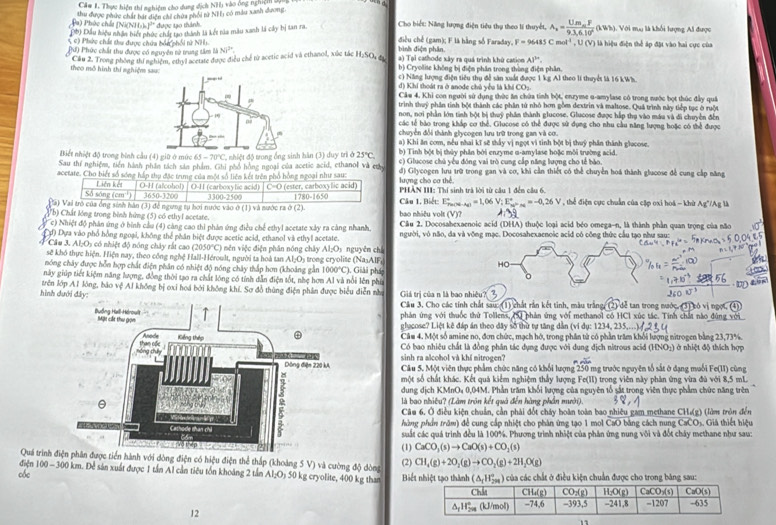 Câu 1. Thực hiện thí nghiệm cho dung dịch NH₃ vào ống nghiệm
thu được phức chất bát diện chỉ chứa phối tử NH₃ có màu xanh dương.
a) Phức chất [Ni(NH₃)₆]²⁺ được tạo thành.
b) Dấu hiệu nhận biết phức chất tạo thành là kết tủa màu xanh lá cây bị tan ra.
c) Phức chất thu được chứa bốn phối tử NH₃.
d) Phức chất thu được có nguyên tử trung tâm là Ni²⁺.
Câu 2. Trong phòng thí nghiệm, ethyl acetate được điều chế từ acetic acid và ethanol, xúc tác H₂SO₄
theo mô hình thí nghiệm sau:
Biết nhiệt độ trong bình cầu (4) giữ ở mức 65 – 70°C, nhiệt độ trong ống sinh hàn (3) duy trì ở 25°C.
Sau thí nghiệm, tiến hành phân tách sản phẩm. Ghi phổ hồng ngoại của acetic acid, ethanol và ethyl
acetate. Cho biết số sóng hấp thụ đặc trưng của một số liên kết trên phổ hồng ngoại như sau:
Liên kết O-H (alcohol) O-H (carboxylic acid) C=O (ester, carboxylic acid)
Số sóng (cm⁻¹) 3650-3200 3300-2500 1780-1650
a) Vai trò của ống sinh hàn (3) để ngưng tụ hơi nước vào ở (1) và nước ra ở (2).
b) Chất lỏng trong bình hứng (5) có ethyl acetate.
c) Nhiệt độ phản ứng ở bình cầu (4) càng cao thì phản ứng điều chế ethyl acetate xảy ra càng nhanh.
d) Dựa vào phổ hồng ngoại, không thể phân biệt được acetic acid, ethanol và ethyl acetate.
Câu 3. Al₂O₃ có nhiệt độ nóng chảy rất cao (2050°C) nên việc điện phân nóng chảy Al₂O₃ nguyên chất
sẽ khó thực hiện. Hiện nay, theo công nghệ Hall-Héroult, người ta hoà tan Al₂O₃ trong cryolite (Na₃AlF₆)
nóng chảy được hỗn hợp chất điện phân có nhiệt độ nóng chảy thấp hơn (khoảng gần 1000°C). Giải pháp
này giúp tiết kiệm năng lượng, đồng thời tạo ra chất lỏng có tính dẫn điện tốt, nhẹ hơn Al và nổi lên phía
trên lớp Al lỏng, bảo vệ Al không bị oxi hoá bởi không khí. Sơ đồ thùng điện phân được biểu diễn như
hình dưới đây:
Buồng Hall-Héroult
Mặt cắt thu gọn
Anode
than cốc
nóng chảy
Kiềng thép
Dòng điện 220 kA
Xi phông để tháo nhôm
Cathode than chì
Gốm
Vỏ thép
Quá trình điện phân được tiến hành với dòng điện có hiệu điện thế thấp (khoảng 5 V) và cường độ dòng
điện 100 – 300 km. Để sản xuất được 1 tấn Al cần tiêu tốn khoảng 2 tấn Al₂O₃ 50 kg cryolite, 400 kg than
cốc
12
Cho biết: Năng lượng điện tiêu thụ theo lí thuyết, Aₜ = U.m.F / 9.3,6.10⁶ (kWh). Với m là khối lượng Al được
điều chế (gam); F là hằng số Faraday, F = 96485 C mol⁻¹, U (V) là hiệu điện thế áp đặt vào hai cực của
bình điện phân.
a) Tại cathode xảy ra quá trình khử cation Al³⁺.
b) Cryolite không bị điện phân trong thùng điện phân.
c) Năng lượng điện tiêu thụ để sản xuất được 1 kg Al theo lí thuyết là 16 kWh.
d) Khí thoát ra ở anode chủ yếu là khí CO₂.
Câu 4. Khi con người sử dụng thức ăn chứa tinh bột, enzyme α-amylase có trong nước bọt thúc đẩy quá
trình thuỷ phân tinh bột thành các phân tử nhỏ hơn gồm dextrin và maltose. Quá trình này tiếp tục ở ruột
non, nơi phần lớn tinh bột bị thuỷ phân thành glucose. Glucose được hấp thụ vào máu và di chuyển đến
các tế bào trong khắp cơ thể. Glucose có thể được sử dụng cho nhu cầu năng lượng hoặc có thể được
chuyển đổi thành glycogen lưu trữ trong gan và cơ.
a) Khi ăn cơm, nếu nhai kĩ sẽ thấy vị ngọt vì tinh bột bị thuỷ phân thành glucose.
b) Tinh bột bị thủy phân bởi enzyme α-amylase hoặc môi trường acid.
c) Glucose chủ yếu đóng vai trò cung cấp năng lượng cho tế bào.
d) Glycogen lưu trữ trong gan và cơ, khi cần thiết có thể chuyển hoá thành glucose để cung cấp năng
lượng cho cơ thể.
PHẦN III: Thí sinh trả lời từ câu 1 đến câu 6.
Câu 1. Biết: E°pin(Ni-Ag) = 1,06 V; E° = –0,26 V, thế điện cực chuẩn của cặp oxi hoá – khử Ag⁺/Ag là
bao nhiêu volt (V)?
Câu 2. Docosahexaenoic acid (DHA) thuộc loại acid béo omega-n, là thành phần quan trọng của não
người, vỏ não, da và võng mạc. Docosahexaenoic acid có công thức cấu tạo như sau:
HO
O
Giá trị của n là bao nhiêu? 3
Câu 3. Cho các tính chất sau: (1) chất rắn kết tinh, màu trắng; (2) dễ tan trong nước; (3) có vị ngọt; (4)
phản ứng với thuốc thử Tollens; (5) phản ứng với methanol có HCl xúc tác. Tính chất nào đúng với
glucose? Liệt kê đáp án theo dãy số thứ tự tăng dần (ví dụ: 1234, 235,...) 1234
Câu 4. Một số amine no, đơn chức, mạch hở, trong phân tử có phần trăm khối lượng nitrogen bằng 23,73%.
Có bao nhiêu chất là đồng phân tác dụng được với dung dịch nitrous acid (HNO₂) ở nhiệt độ thích hợp
sinh ra alcohol và khí nitrogen?
Câu 5. Một viên thực phẩm chức năng có khối lượng 250 mg trước nguyên tố sắt ở dạng muối Fe(II) cùng
một số chất khác. Kết quả kiểm nghiệm thấy lượng Fe(II) trong viên này phản ứng vừa đủ với 8,5 mL
dung dịch KMnO₄ 0,04M. Phần trăm khối lượng của nguyên tố sắt trong viên thực phẩm chức năng trên
là bao nhiêu? (Làm tròn kết quả đến hàng phần mười). 38,1
Câu 6. Ở điều kiện chuẩn, cần phải đốt cháy hoàn toàn bao nhiêu gam methane CH₄(g) (làm tròn đến
hàng phần trăm) để cung cấp nhiệt cho phản ứng tạo 1 mol CaO bằng cách nung CaCO₃. Giả thiết hiệu
suất các quá trình đều là 100%. Phương trình nhiệt của phản ứng nung vôi và đốt cháy methane như sau:
(1) CaCO₃(s) → CaO(s) + CO₂(s)
(2) CH₄(g) + 2O₂(g) → CO₂(g) + 2H₂O(g)
Biết nhiệt tạo thành (ΔfH°₂₉₈) của các chất ở điều kiện chuẩn được cho trong bảng sau:
Chất CH₄(g) CO₂(g) H₂O(g) CaCO₃(s) CaO(s)
ΔfH°₂₉₈ (kJ/mol) –74,6 –393,5 –241,8 –1207 –635
13